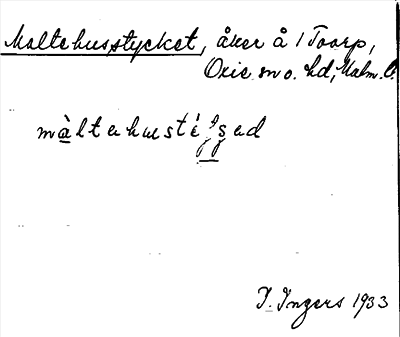 Maltehusstycket, åker å 1 Toarp,
Oxie sn o. hd, Malm. l.
màltahust
I. Ingers 1933